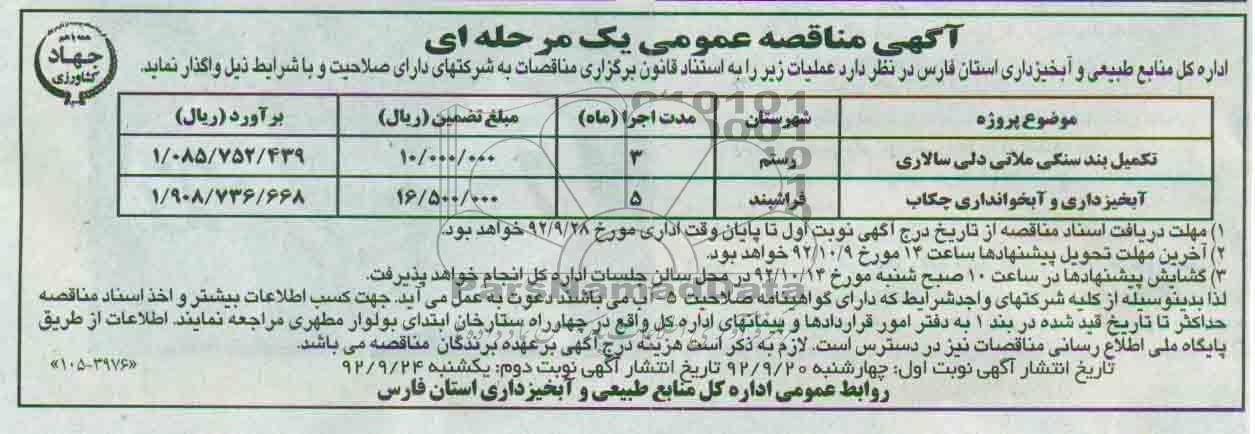 آگهی مناقصه عمومی یک مرحله ای
همه با هم
جهاد
کشاورزی
اداره کل منابع طبیعی و آبخیزداری استان فارس در نظر دارد عملیات زیر را به استناد قانون برگزاری مناقصات به شرکتهای دارای صلاحیت و با شرایط ذیل واگذار نماید.
موضوع پروژه شهرستان مدت اجرا (ماه) مبلغ تضمین (ریال) برآورد (ریال)
تکمیل بند سنگی ملاتی دلی سالاری رستم ۳ ۱۰/۰۰۰/۰۰۰ ۱/۰۸۵/۷۵۲/۴۳۹
آبخیزداری و آبخوانداری چکاب فراشبند ۵ ۱۶/۵۰۰/۰۰۰ ۱/۹۰۸/۷۳۶/۶۶۸
۱) مهلت دریافت اسناد مناقصه از تاریخ درج آگهی نوبت اول تا پایان وقت اداری مورخ ۹۲/۹/۲۸ خواهد بود.
۲) آخرین مهلت تحویل پیشنهادها ساعت ۱۴ مورخ ۹۲/۱۰/۹ خواهد بود.
۳) گشایش پیشنهادها در ساعت ۱۰ صبح شنبه مورخ ۹۲/۱۰/۱۴ در محل سالن جلسات اداره کل انجام خواهد پذیرفت.
لذا بدینوسیله از کلیه شرکتهای واجدشرایط که دارای گواهینامه صلاحیت ۵ - آب می باشند دعوت به عمل می آید. جهت کسب اطلاعات بیشتر و اخذ اسناد مناقصه
حداکثر تا تاریخ قید شده در بند ۱ به دفتر امور قراردادها و پیمانهای اداره کل واقع در چهارراه ستارخان ابتدای بولوار مطهری مراجعه نمایند. اطلاعات از طریق
پایگاه ملی اطلاع رسانی مناقصات نیز در دسترس است. لازم به ذکر است هزینه درج آگهی برعهده برندگان مناقصه می باشد.
تاریخ انتشار آگهی نوبت اول: چهارشنبه ۹۲/۹/۲۰ تاریخ انتشار آگهی نوبت دوم: یکشنبه ۹۲/۹/۲۴
«۱۰۵-۳۹۷۶»
روابط عمومی اداره کل منابع طبیعی و آبخیزداری استان فارس
ParsNamadData